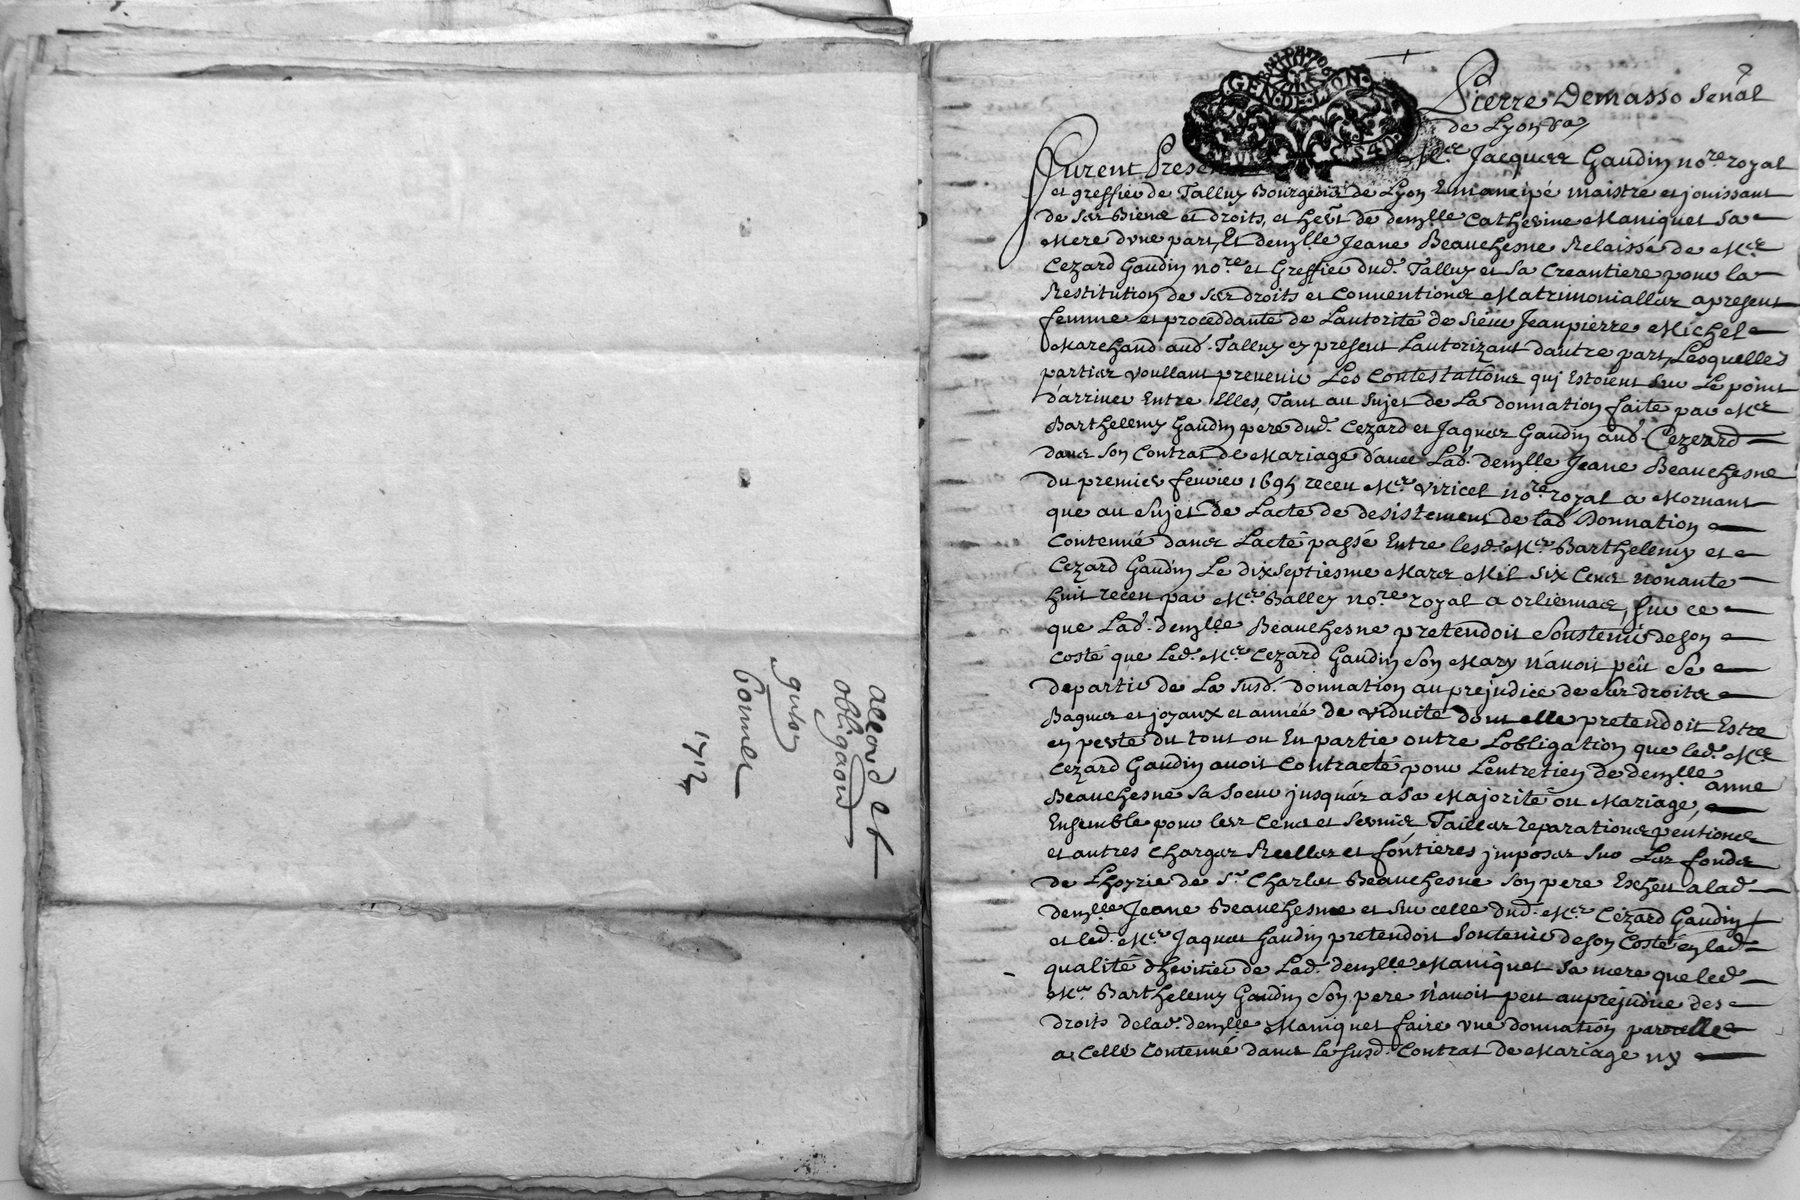 accord et
obligaon
1712
GEN · DE · LION
Pierre Demasso Senal
de Lyon
Furent Presens Mer Jacques Gaudin nore royal
et greffier de Talluy Bourgeois de Lyon Emancipé maistre et jouissant
de ses Biens et droits, et hert de demlle Catherine Maniquet Sa
Mere dvne part, Et demlle Jeane Beauchesne Relaissé de Mer
Cezard Gaudin nore et Greffier dud. Talluy et Sa Creantiere pour la
Restitution de ses droits et Conventions Matrimonialles apresent
femme et proceddante de Lautorité de Sieur Jeanpierre Michel
Marchand aud. Talluy en present Lautorizant dautre part, Lesquelles
parties voullant prevenir Les Contestations qui Estoient sur Le point
d'arriver Entre Elles, Tant au Sujet de La donnation faite par Mer
Barthelemy Gaudin pere dud. Cezard et Jaques Gaudin aud. Cezard
dans Son Contrat de Mariage d'avec Lad. demlle Jeane Beauchesne
du premier fevrier 1695 receu Mer Viricel nore royal a Mornant
que au Sujet de Lacte de desistement de lad Donnation
Contenüe dans Lacte passé Entre lesd. Mer Barthelemy et
Cezard Gaudin Le dixseptiesme Mars Mil Six Cens nonante
huit receu par Mer Balley nore royal a orliennas, sur ce
que Lad. demlle Beauchesne pretendoit Soustenir de son
Costé que Led. Mer Cezard Gaudin Son Mary n'avoit peü Se
departir de La Susd. donnation au prejudice de Ses droits
Bagues et joyaux et année de viduité dont elle pretendoit Estre
en perte du tout ou En partie outre Lobligation que led. Mer
Cezard Gaudin avoit Contracté pour Lentretien de demlle anne
Beauchesne Sa Soeur jusques a Sa Majorité ou Mariage,
Ensemble pour les Cens et Servis Tailles reparations pentions
et autres Charges Reelles et fontieres imposés Sur Les fonds
de Lhoyrie de Sr Charles Beauchesne Son pere Escheu a lad
demlle Jeane Beauchesne et Sur celle dud. Mer Cezard Gaudin
et led. Mer Jaques Gaudin pretendoit Soutenir de son Costé en lad
qualité d'heritier de Lad. demlle Maniquet Sa mere que led
Mer Barthelemy Gaudin Son pere n'avoit peu au prejudice des
droits de lad. demlle Maniquet faire vne donnation pareille
a Celle Contenüe dans le susd. Contrat de Mariage ny